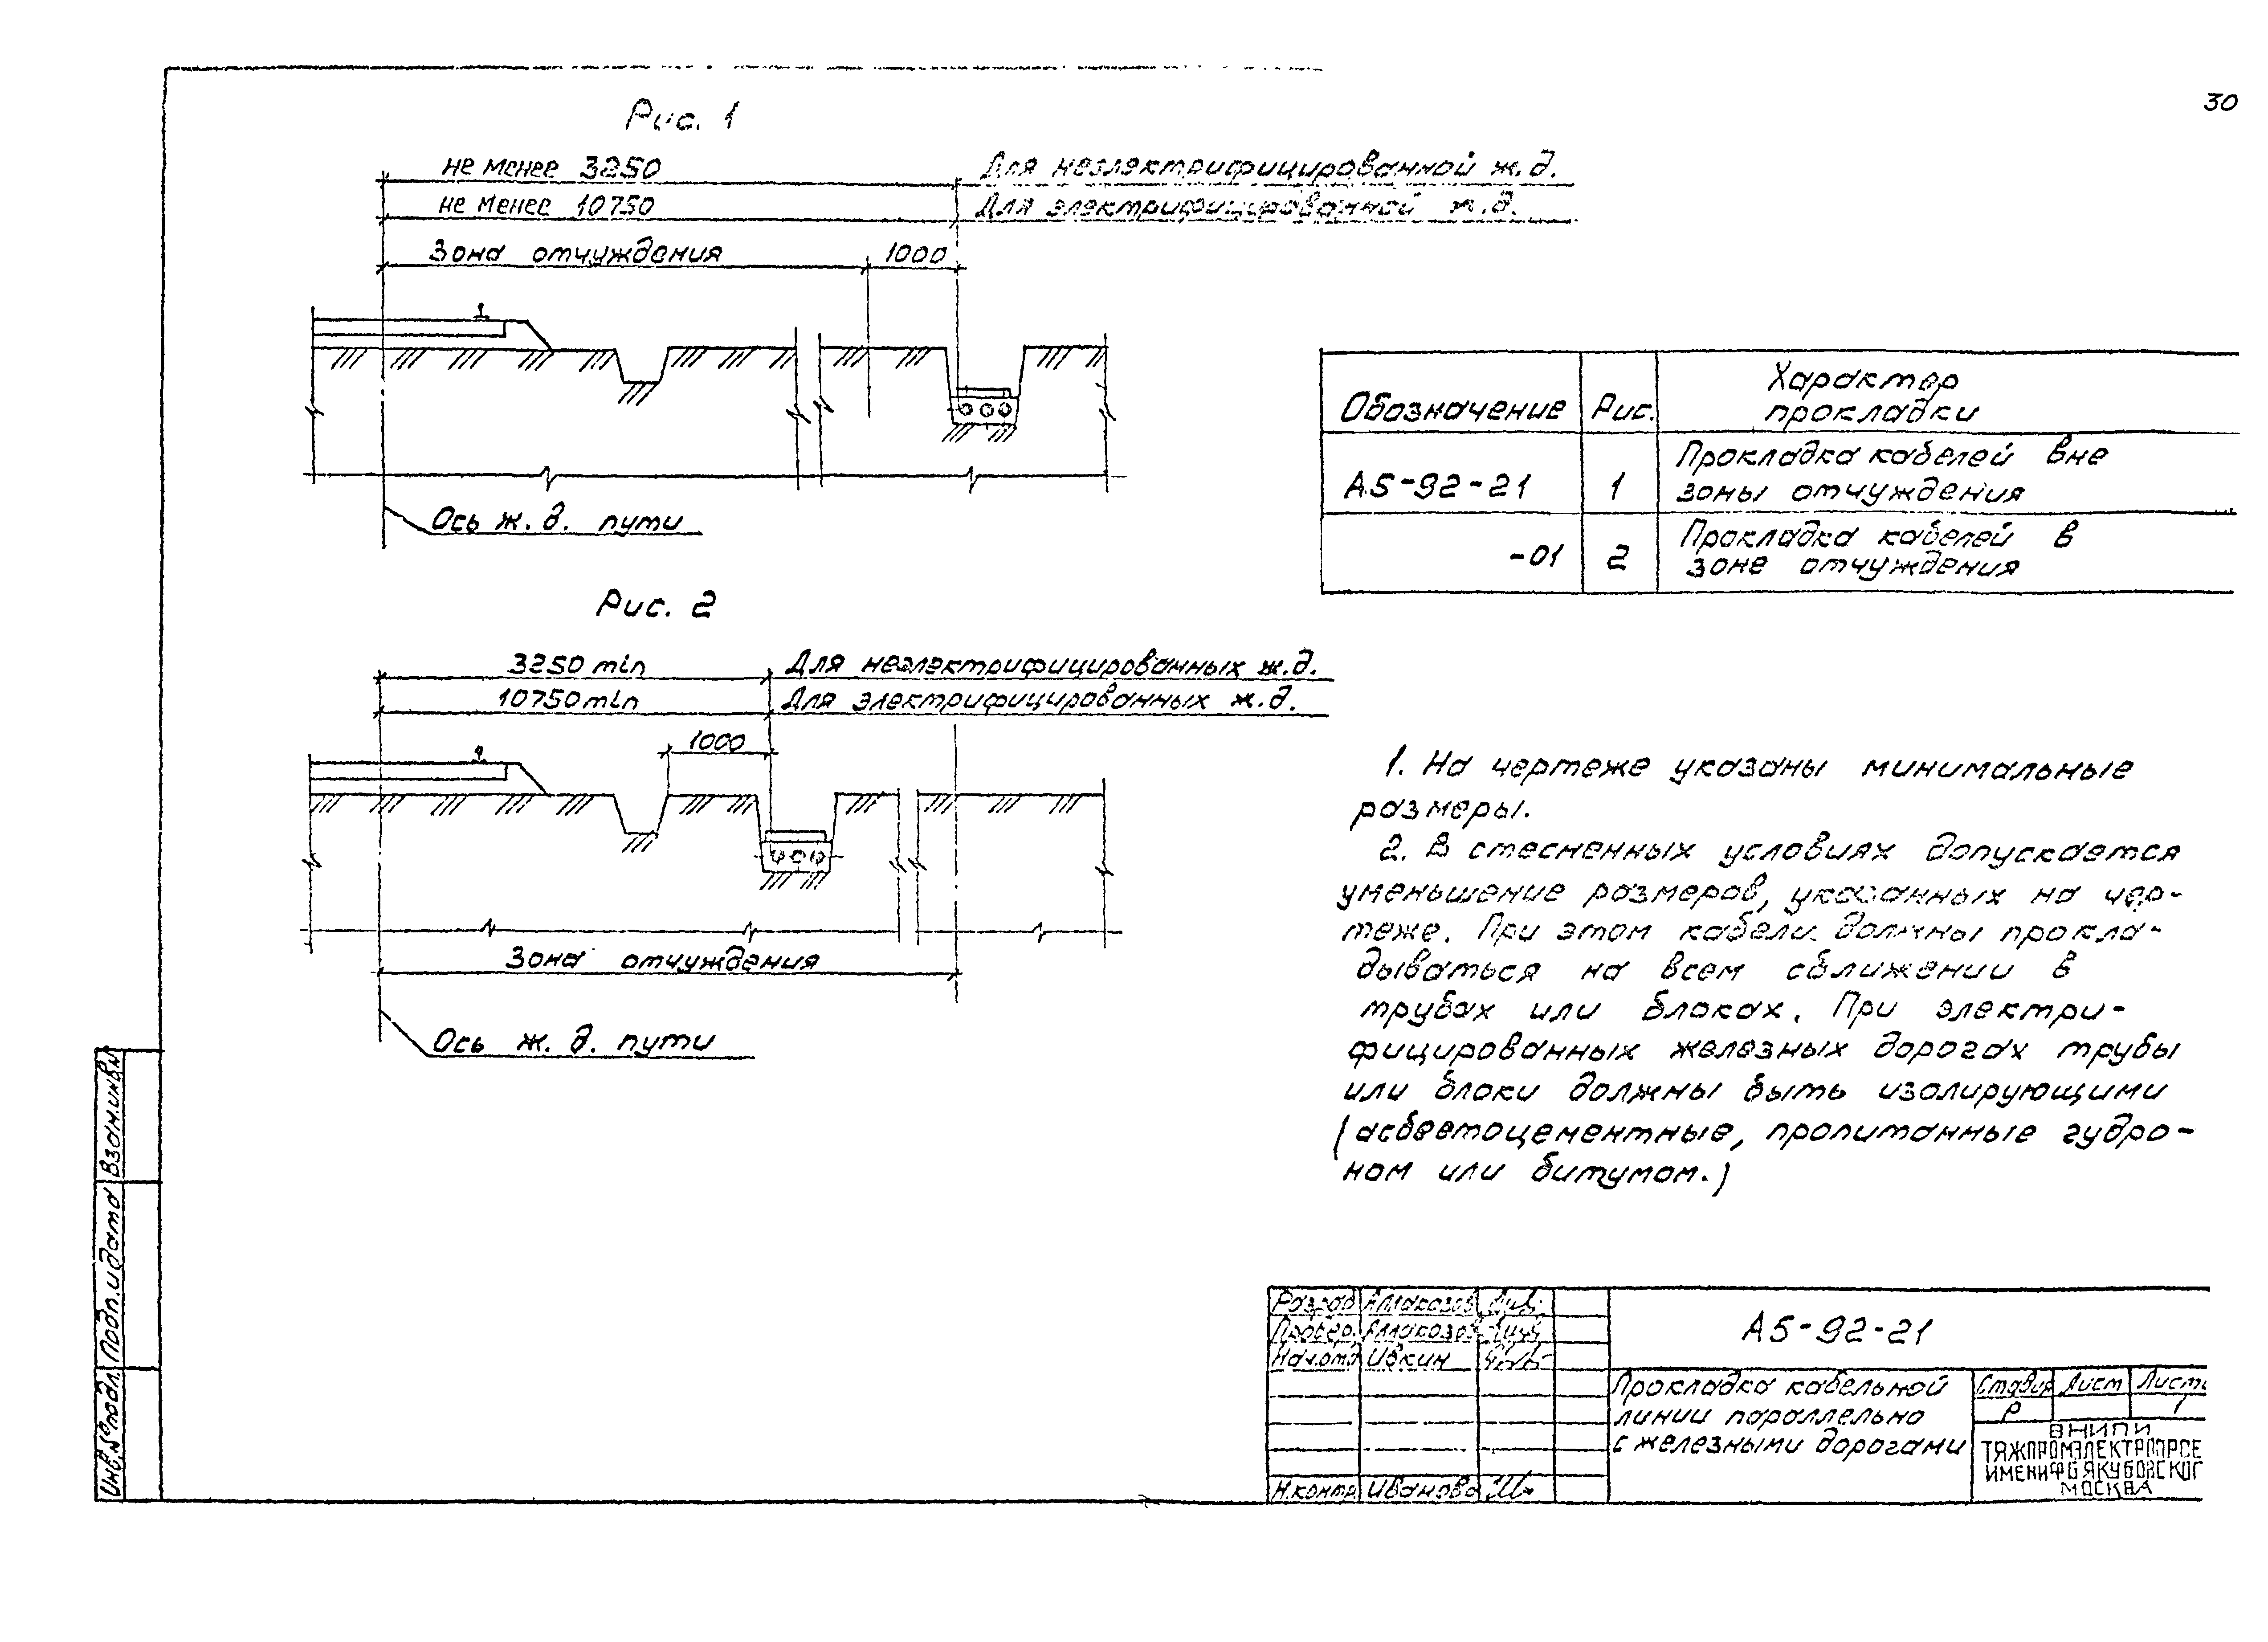 30
Рис. 1
не менее 3250
Для неэлектрифицированной ж.д.
не менее 10750
Для электрифицированной ж.д.
Зона отчуждения
1000
Ось ж.д. пути
Рис. 2
3250 min
Для неэлектрифицированных ж.д.
10750 min
Для электрифицированных ж.д.
1000
Зона отчуждения
Ось ж.д. пути
Обозначение
Рис.
Характер
прокладки
А5-92-21
1
Прокладка кабелей вне
зоны отчуждения
-01
2
Прокладка кабелей в
зоне отчуждения
1. На чертеже указаны минимальные
размеры.
2. В стесненных условиях допускается
уменьшение размеров, указанных на чер-
теже. При этом кабели должны прокла-
дываться на всем сближении в
трубах или блоках. При электри-
фицированных железных дорогах трубы
или блоки должны быть изолирующими
(асбестоцементные, пропитанные гудро-
ном или битумом.)
Взам.инв.№
Подп. и дата
Инв.№подл.
Разраб
Провер.
Нач.отд
Ивкин
Н.контр.
Иванова
А5-92-21
Прокладка кабельной
линии параллельно
с железными дорогами
Стадия
Лист
Листо
Р
1
ВНИПИ
ТЯЖПРОМЭЛЕКТРОПРОЕ
ИМЕНИ Ф.Б.ЯКУБОВСКОГ
МОСКВА